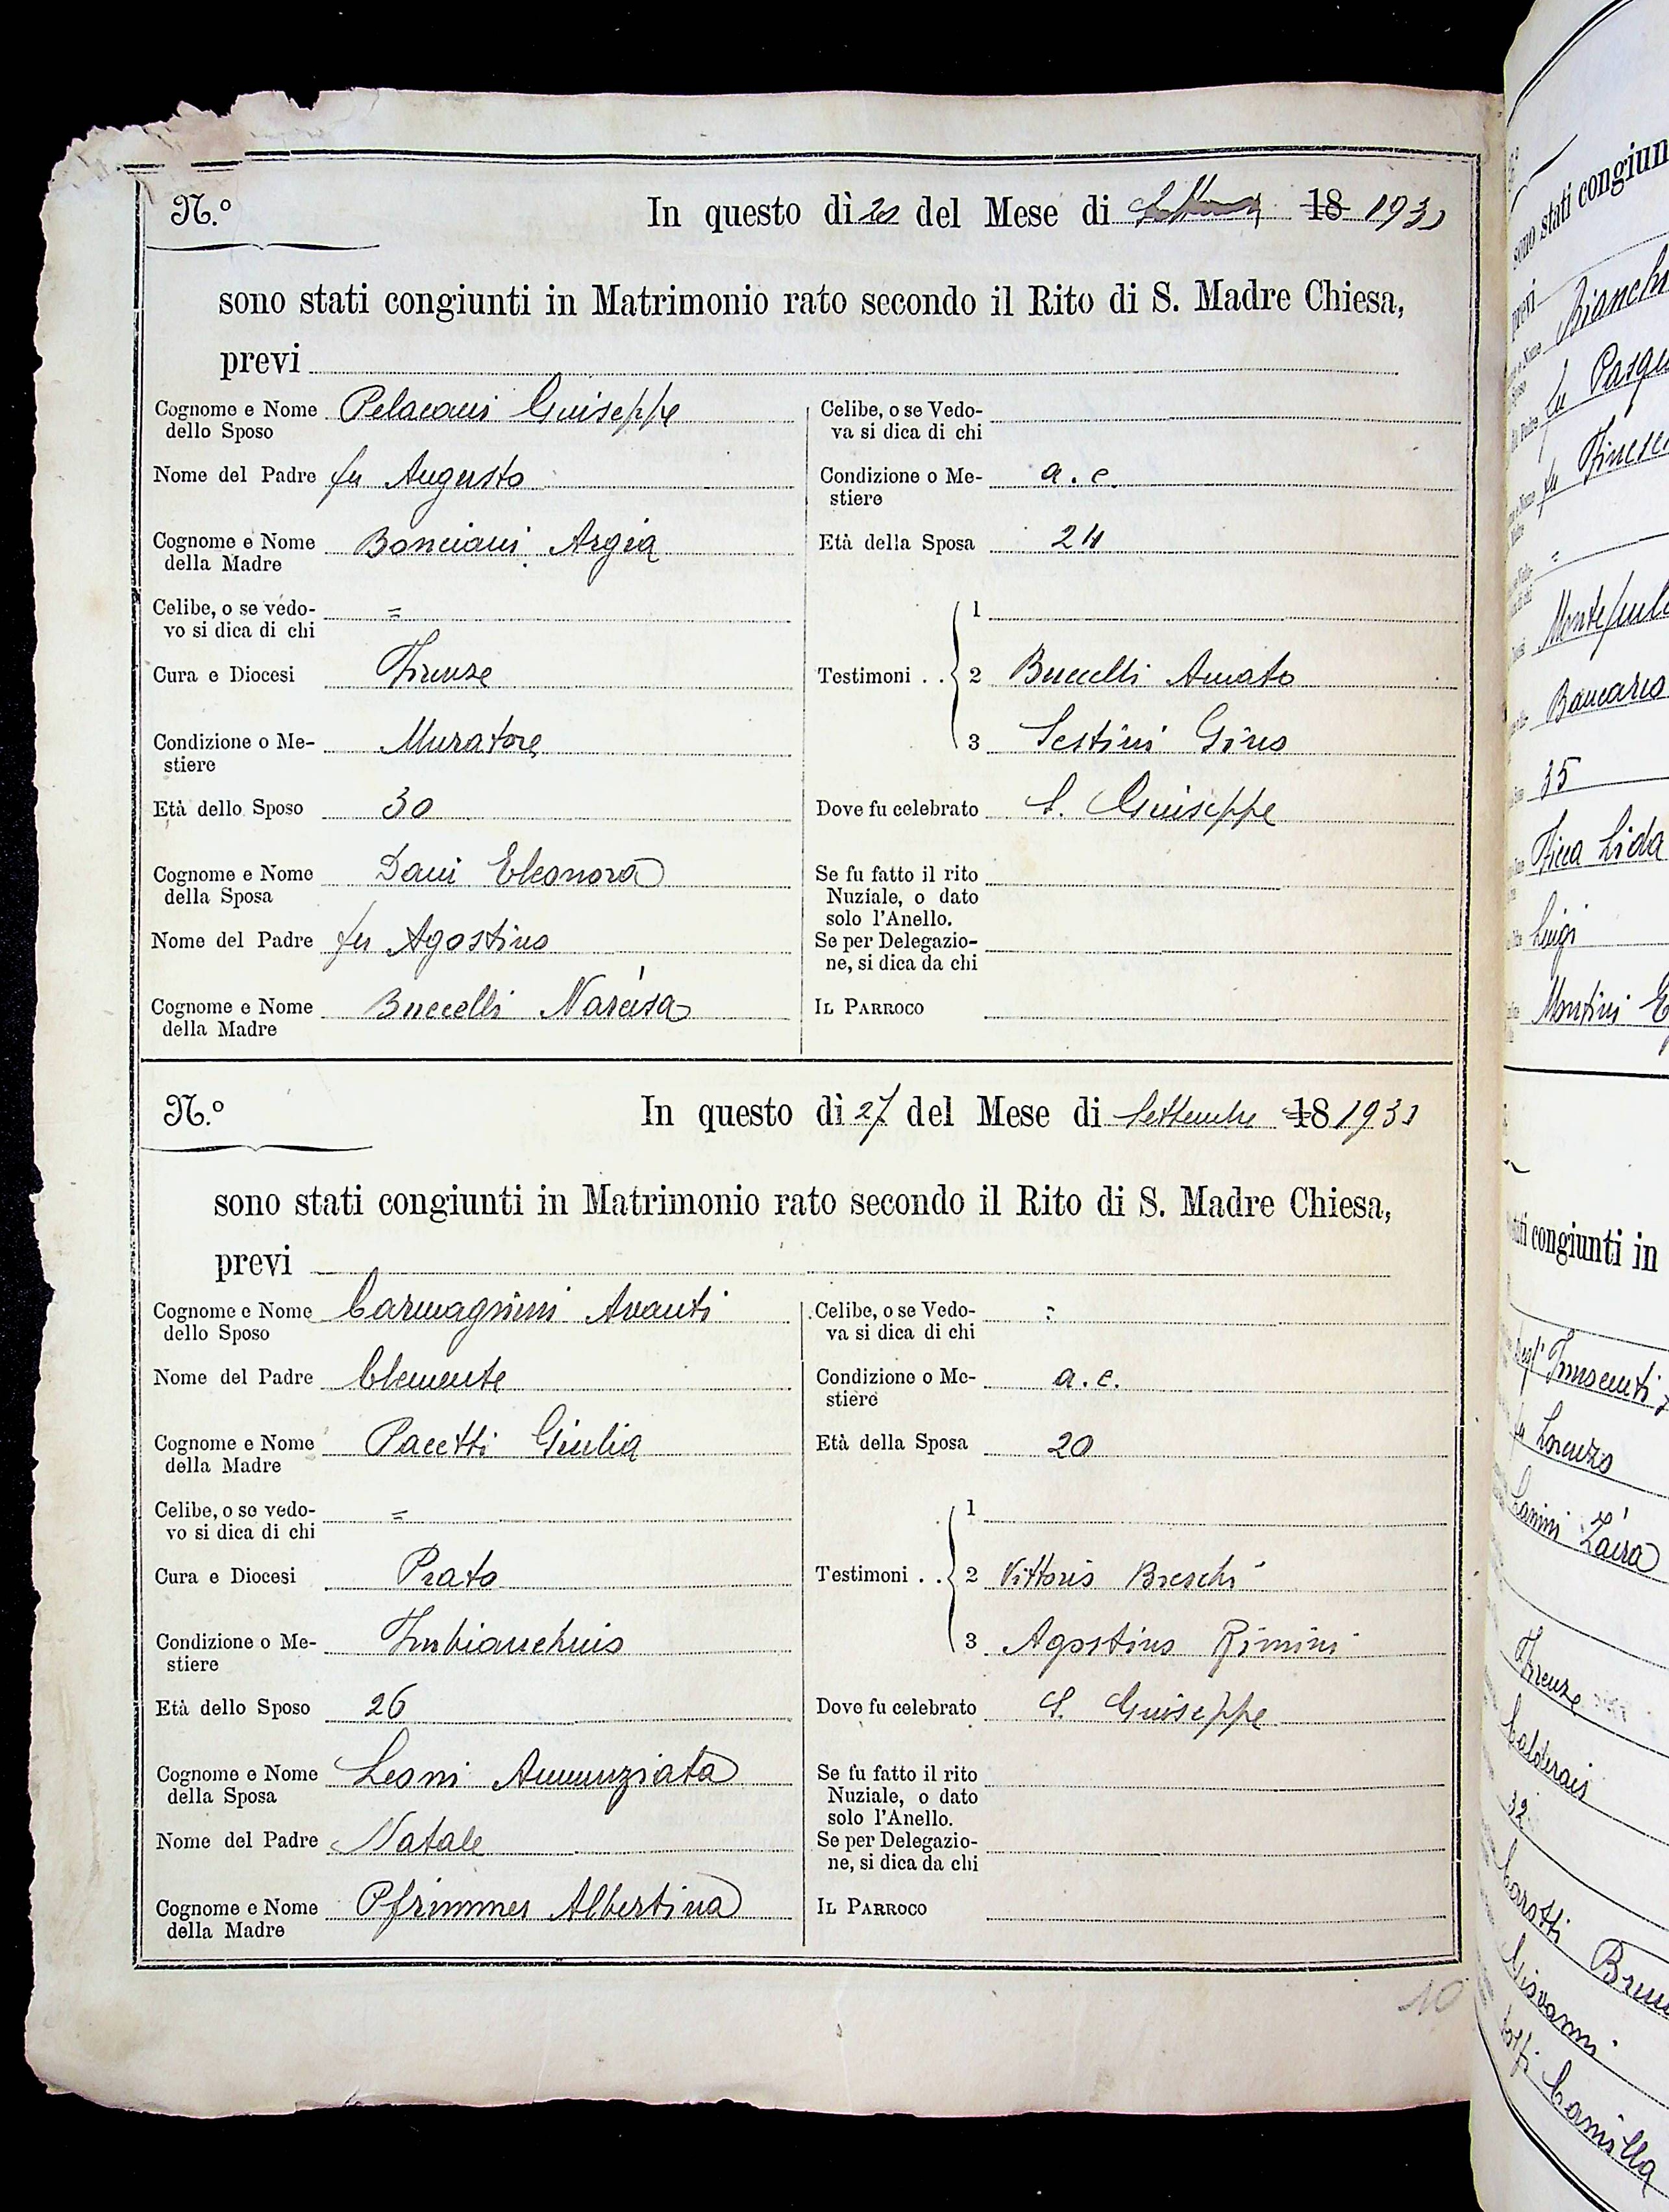 N.º In questo dì 20 del Mese di Settembre 18 1931
sono stati congiunti in Matrimonio rato secondo il Rito di S. Madre Chiesa,
previ
Cognome e Nome dello Sposo Pelacani Giuseppe
Nome del Padre fu Augusto
Cognome e Nome della Madre Bonciani Argia
Celibe, o se vedovo si dica di chi =
Cura e Diocesi Firenze
Condizione o Mestiere Muratore
Età dello Sposo 30
Cognome e Nome della Sposa Dani Eleonora
Nome del Padre fu Agostino
Cognome e Nome della Madre Buccelli Narcisa
Celibe, o se Vedova si dica di chi
Condizione o Mestiere a. c.
Età della Sposa 24
Testimoni . . 1
2 Buccelli Amato
3 Sestini Gino
Dove fu celebrato S. Giuseppe
Se fu fatto il rito Nuziale, o dato solo l'Anello.
Se per Delegazione, si dica da chi
IL PARROCO
N.º In questo dì 27 del Mese di Settembre 18 1931
sono stati congiunti in Matrimonio rato secondo il Rito di S. Madre Chiesa,
previ
Cognome e Nome dello Sposo Carmagnini Avanti
Nome del Padre Clemente
Cognome e Nome della Madre Pacetti Giulia
Celibe, o se vedovo si dica di chi =
Cura e Diocesi Prato
Condizione o Mestiere Imbianchino
Età dello Sposo 26
Cognome e Nome della Sposa Leoni Annunziata
Nome del Padre Natale
Cognome e Nome della Madre Pfrimmer Albertina
Celibe, o se Vedova si dica di chi =
Condizione o Mestiere a. c.
Età della Sposa 20
Testimoni . . 1
2 Vittorio Breschi
3 Agostino Rimini
Dove fu celebrato S. Giuseppe
Se fu fatto il rito Nuziale, o dato solo l'Anello.
Se per Delegazione, si dica da chi
IL PARROCO
10
sono stati congiun
previ
Bianchi
fu Pasqu
fu
=
Bancario
35
Lida
Luigi
Montini E
stati congiunti in
Degl' Innocenti
fu Lorenzo
Lanini Zaira
Firenze
Calderaio
32
Carotti Brun
Giovanni
Camilla